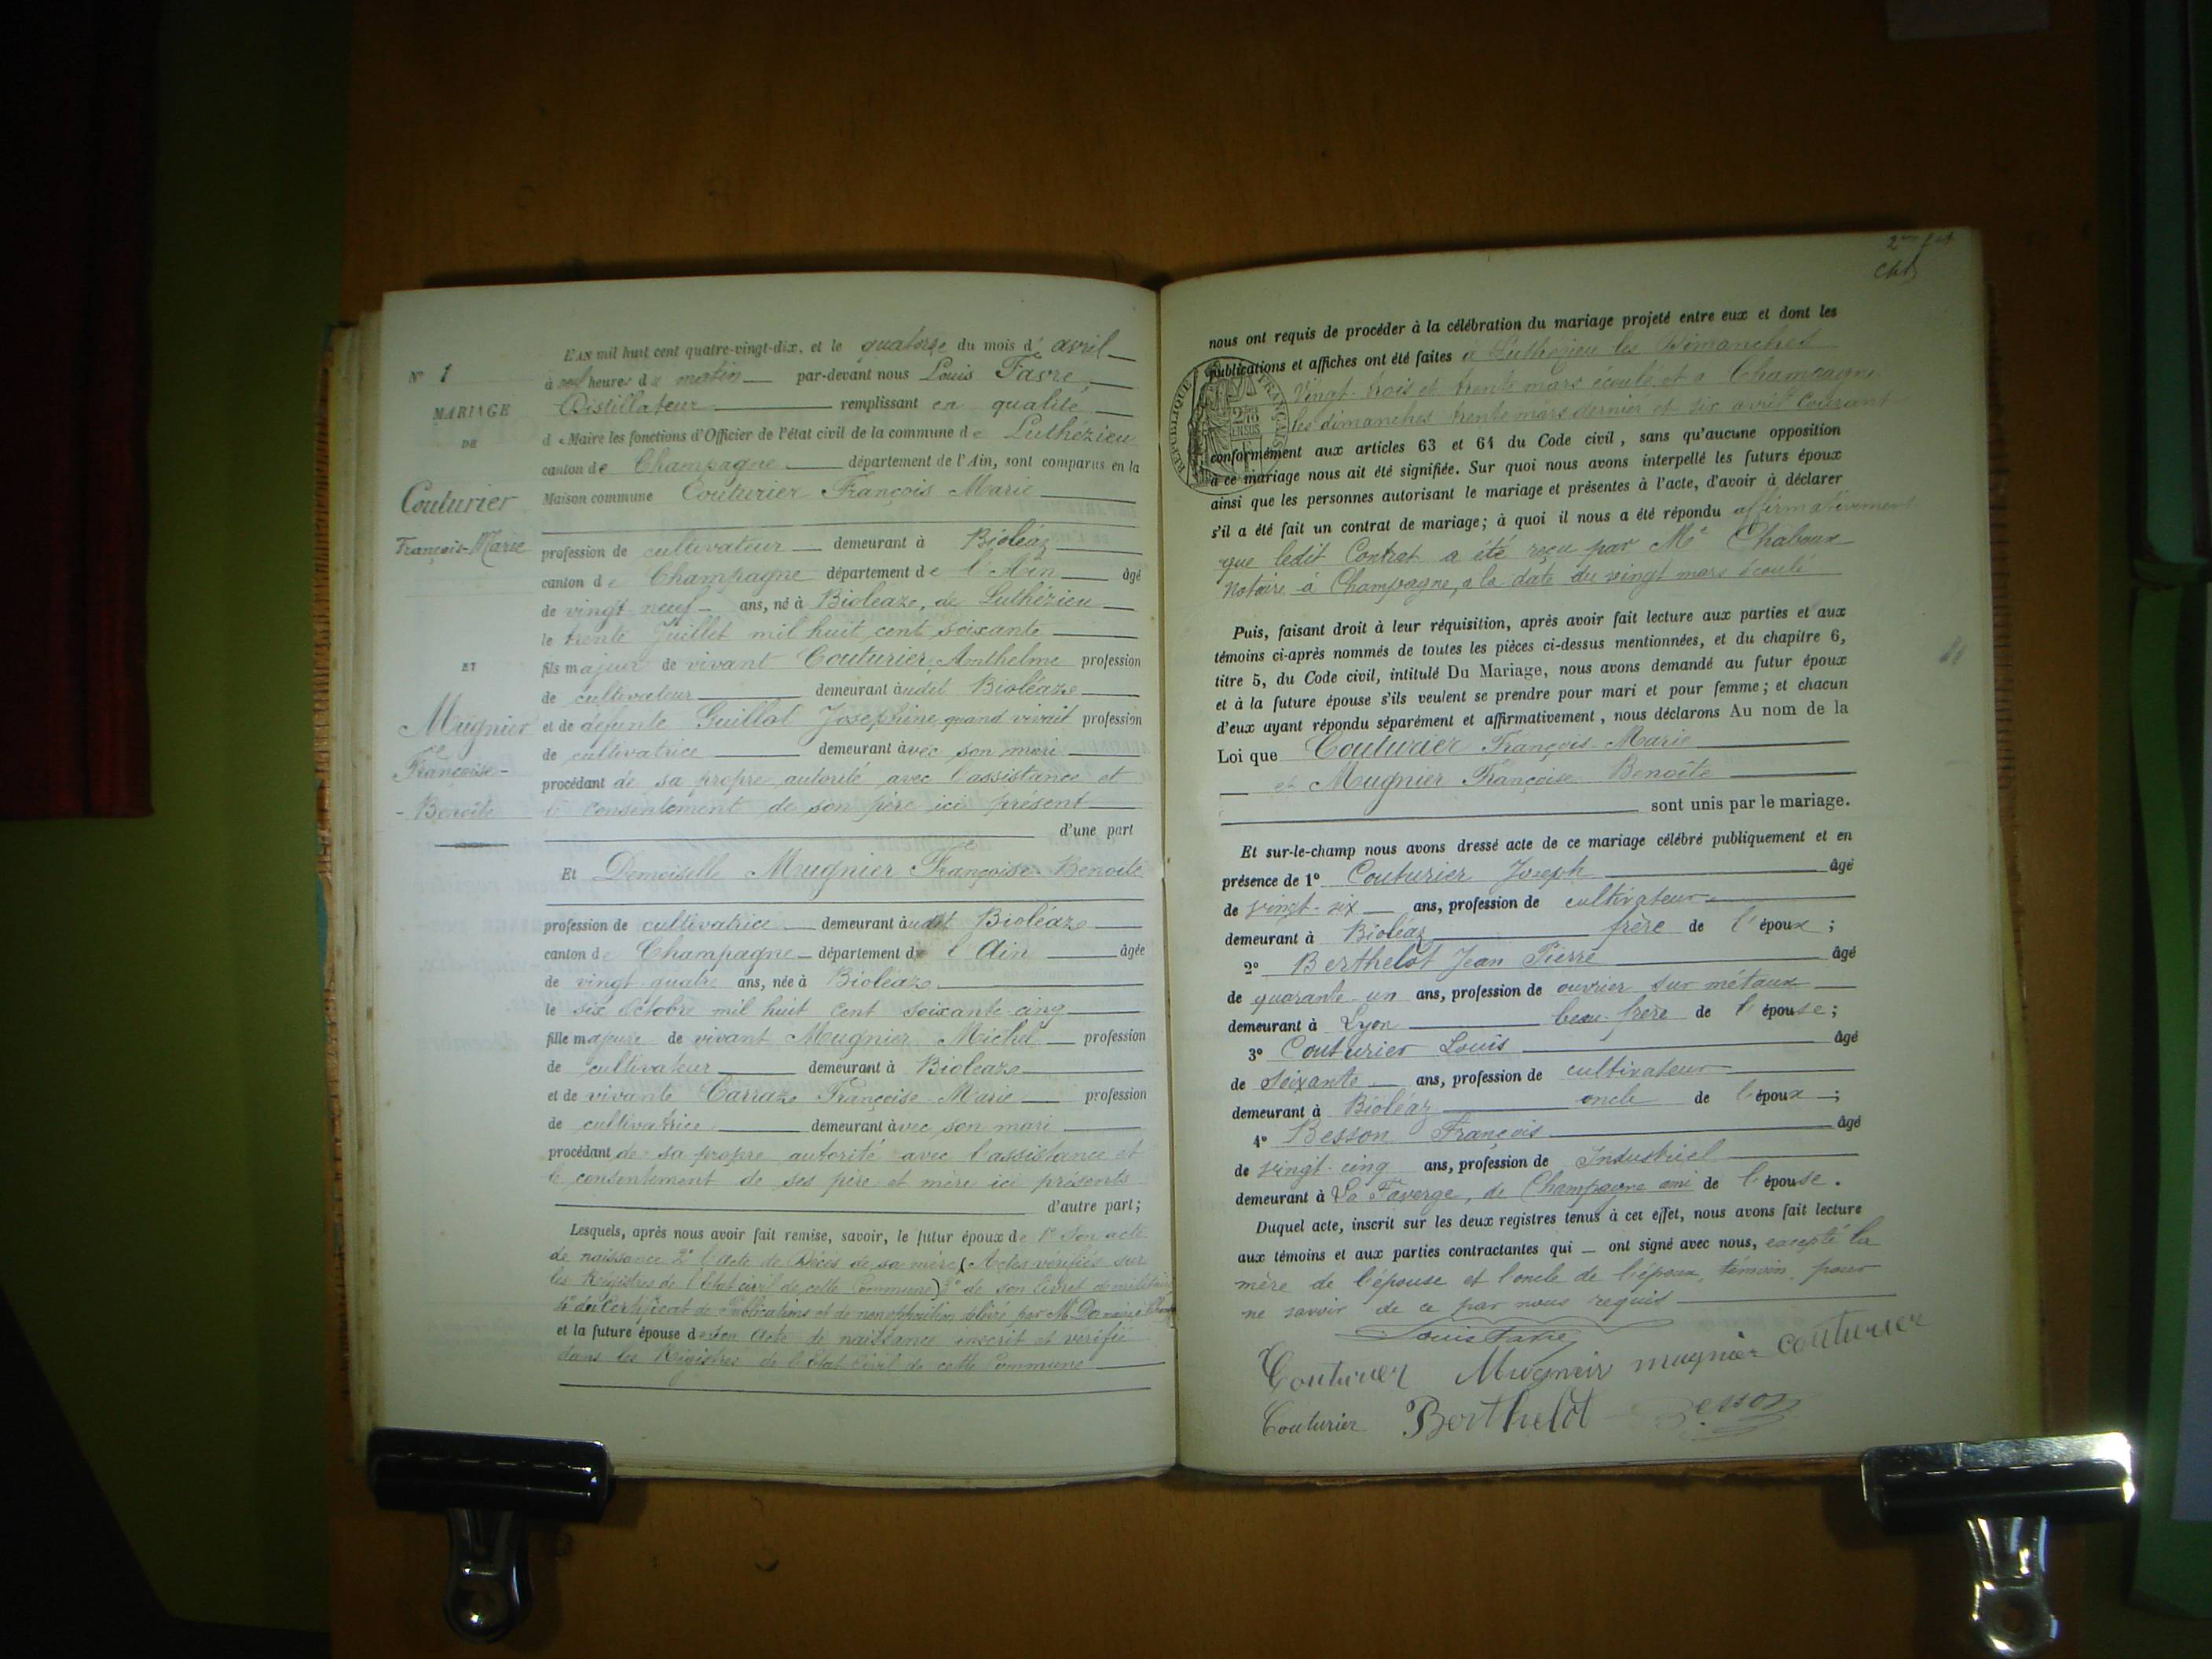 L'AN mil huit cent quatre-vingt-dix, et le quatorze du mois d'avril
N° 1
à heures du matin par-devant nous Louis Favre,
MARIAGE
Distillateur remplissant en qualité
DE
de Maire les fonctions d'Officier de l'état civil de la commune de Luthézieu
canton de Champagne département de l'Ain, sont comparus en la
Couturier
Maison commune Couturier François Marie
François-Marie
profession de cultivateur demeurant à Bioléaz
canton de Champagne département de l'Ain âgé
de vingt neuf ans, né à Bioléaze, de Luthézieu
le trente Juillet mil huit cent soixante
ET
fils majeur de vivant Couturier Anthelme profession
de cultivateur demeurant audit Bioléaze
Mugnier
et de défunte Guillot Josephine, quand vivait profession
de cultivatrice demeurant avec son mari
Françoise-
procédant de sa propre autorité avec l'assistance et
-Benoîte
le consentement de son père ici présent
d'une part
Et Demoiselle Mugnier Françoise-Benoîte
profession de cultivatrice demeurant audit Bioléaze
canton de Champagne département de l'Ain âgée
de vingt-quatre ans, née à Bioléaze
le six Octobre mil huit cent soixante-cinq
fille majeure de vivant Mugnier Michel profession
de cultivateur demeurant à Bioléaze
et de vivante Carraze Françoise-Marie profession
de cultivatrice demeurant avec son mari
procédant de sa propre autorité avec l'assistance et
le consentement de ses père et mère ici présents
d'autre part;
Lesquels, après nous avoir fait remise, savoir, le futur époux de 1° Son acte
de naissance 2° l'Acte de Décès de sa mère (Actes vérifiés sur
les Régistres de l'Etat civil de cette Commune) 3° de son livret de militaire
4° du Certificat de Publications et de non opposition délivré par M.
et la future épouse de son Acte de naissance inscrit et vérifié
dans les Régistres de l'Etat Civil de cette Commune
nous ont requis de procéder à la célébration du mariage projeté entre eux et dont les
publications et affiches ont été faites à Luthézieu les Dimanches
Vingt-trois et trente mars écoulé et à Champagne
les dimanches trente mars dernier et six avril Courant
conformément aux articles 63 et 64 du Code civil, sans qu'aucune opposition
à ce mariage nous ait été signifiée. Sur quoi nous avons interpellé les futurs époux
ainsi que les personnes autorisant le mariage et présentes à l'acte, d'avoir à déclarer
s'il a été fait un contrat de mariage; à quoi il nous a été répondu affirmativement
que ledit Contrat a été reçu par Me Chaboux
Notaire à Champagne, à la date du vingt mars écoulé
RÉPUBLIQUE FRANÇAISE
Puis, faisant droit à leur réquisition, après avoir fait lecture aux parties et aux
témoins ci-après nommés de toutes les pièces ci-dessus mentionnées, et du chapitre 6,
titre 5, du Code civil, intitulé Du Mariage, nous avons demandé au futur époux
et à la future épouse s'ils veulent se prendre pour mari et pour femme; et chacun
d'eux ayant répondu séparément et affirmativement, nous déclarons Au nom de la
Loi que Couturier François-Marie
et Mugnier Françoise Benoîte
sont unis par le mariage.
Et sur-le-champ nous avons dressé acte de ce mariage célébré publiquement et en
présence de 1° Couturier Joseph âgé
de vingt-six ans, profession de cultivateur
demeurant à Bioléaz frère de l'époux;
2° Berthelot Jean Pierre âgé
de quarante-un ans, profession de ouvrier sur métaux
demeurant à Lyon beau-frère de l'épouse;
3° Couturier Louis âgé
de soixante ans, profession de cultivateur
demeurant à Bioléaz oncle de l'époux;
4° Besson François âgé
de vingt-cinq ans, profession de Industriel
demeurant à La Faverge, de Champagne ami de l'épouse.
Duquel acte, inscrit sur les deux registres tenus à cet effet, nous avons fait lecture
aux témoins et aux parties contractantes qui ont signé avec nous, excepté la
mère de l'épouse et l'oncle de l'époux, témoin, pour
ne savoir de ce par nous requis
Louis Favre
Couturier Mugnier mugnier couturier
Couturier Berthelot Besson